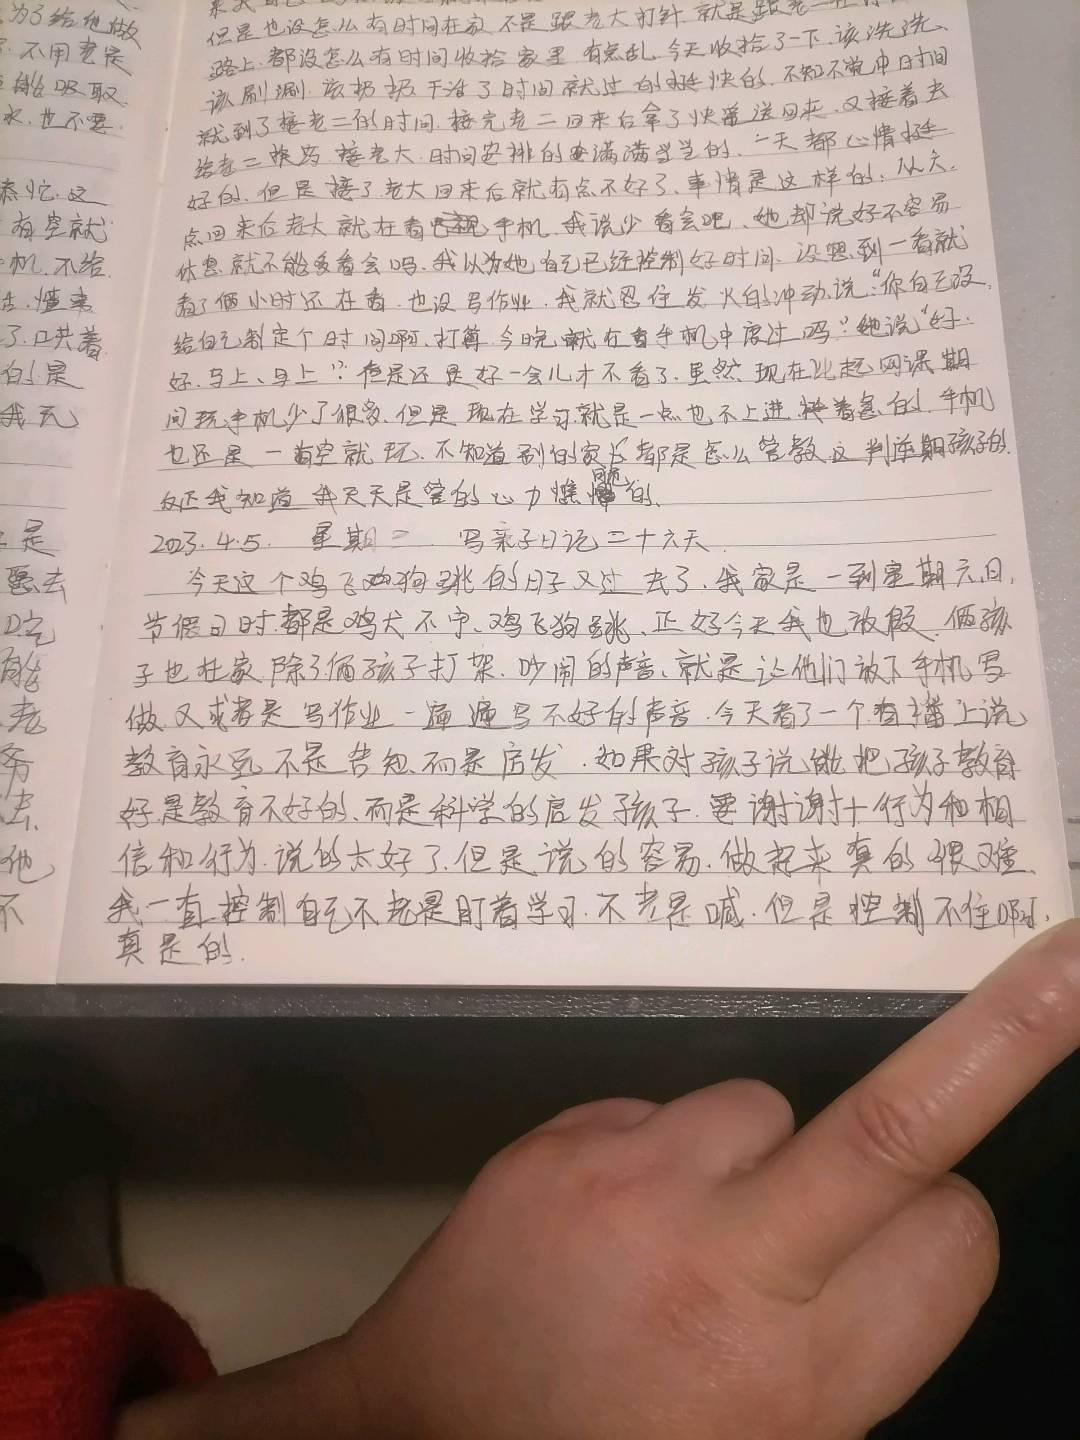 为了给他做
不用老是
能吸取
水.也不要
有空就
手机.不给
了.口头着
的是
我元
是
愿去
吃
能
老
务
法
他
不
但是也没怎么有时间在家.不是跟老大打针.就是跟老二在
路上.都没怎么有时间收拾家里.有点乱.今天收拾了一下.该洗洗、
该刷刷.该扔扔.干净了时间就过的挺快的.不知不觉中时间
就到了接老二的时间.接完老二回来后拿了快递送回来.又接着去
给老二拿药.接老大.时间安排的满满当当的.一天都心情挺
好的.但是接了老大回来后就有点不好了.事情是这样的.从六
点回来后老大就在看手机.我说少看会吧、她却说好不容易
休息.就不能多看会吗.我以为她自己已经控制好时间.没想到一看就
看了俩小时还在看.也没写作业.我就忍住发火的冲动.说:“你自己没
给自己制定个时间啊.打算今晚就在看手机中度过吗?”她说“好.
好.马上、马上”.但是还是好一会儿才不看了.虽然现在比起网课期
间玩手机少了很多.但是现在学习就是一点也不上进.挺着急的.手机
也还是一有空就玩.不知道别的家长都是怎么管教这判逆期孩子的.
反正我知道我天天是管的心力憔悴的.
2023.4.5. 星期三 写亲子日记二十六天.
今天这个鸡飞狗跳的日子又过去了.我家是一到星期六日,
节假日时.都是鸡犬不宁、鸡飞狗跳、正好今天我也放假.俩孩
子也在家.除了俩孩子打架.吵闹的声音、就是让他们放下手机写
做.又或者是写作业一遍遍写不好的声音.今天看了一个直播上说
教育永远不是告知.而是启发.如果对孩子说能把孩子教育
好.是教育不好的.而是科学的启发孩子.要谢谢+行为和相
信和行为.说的太好了.但是说的容易.做起来真的很难.
我一直控制自己不老是盯着学习.不老是喊.但是控制不住啊,
真是的.